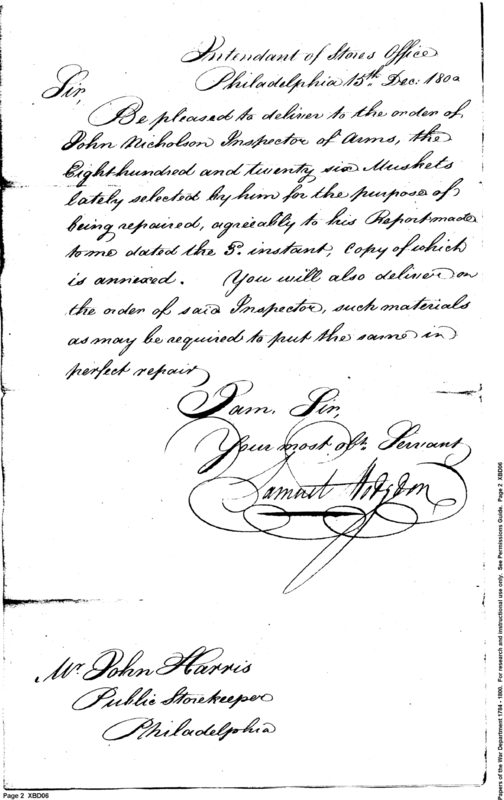 Intendant of Stores Office
Philadelphia 15th. Dec: 1800
Sir,
Be pleased to deliver to the order of
John Nicholson Inspector of Arms, the
Eight hundred and twenty six Muskets
lately selected by him for the purpose of
being repaired, agreeably to his Report made
to me dated the 5. instant, Copy of which
is annexed. You will also deliver on
the order of said Inspector, such materials
as may be required to put the same in
perfect repair
I am, Sir,
Your most obt. Servant
Samuel Hodgdon
Mr. John Harris
Public Storekeeper
Philadelphia
Page 2 XBD06
Papers of the War Department 1784 - 1800. For research and instructional use only. See Permissions Guide. Page 2 XBD06